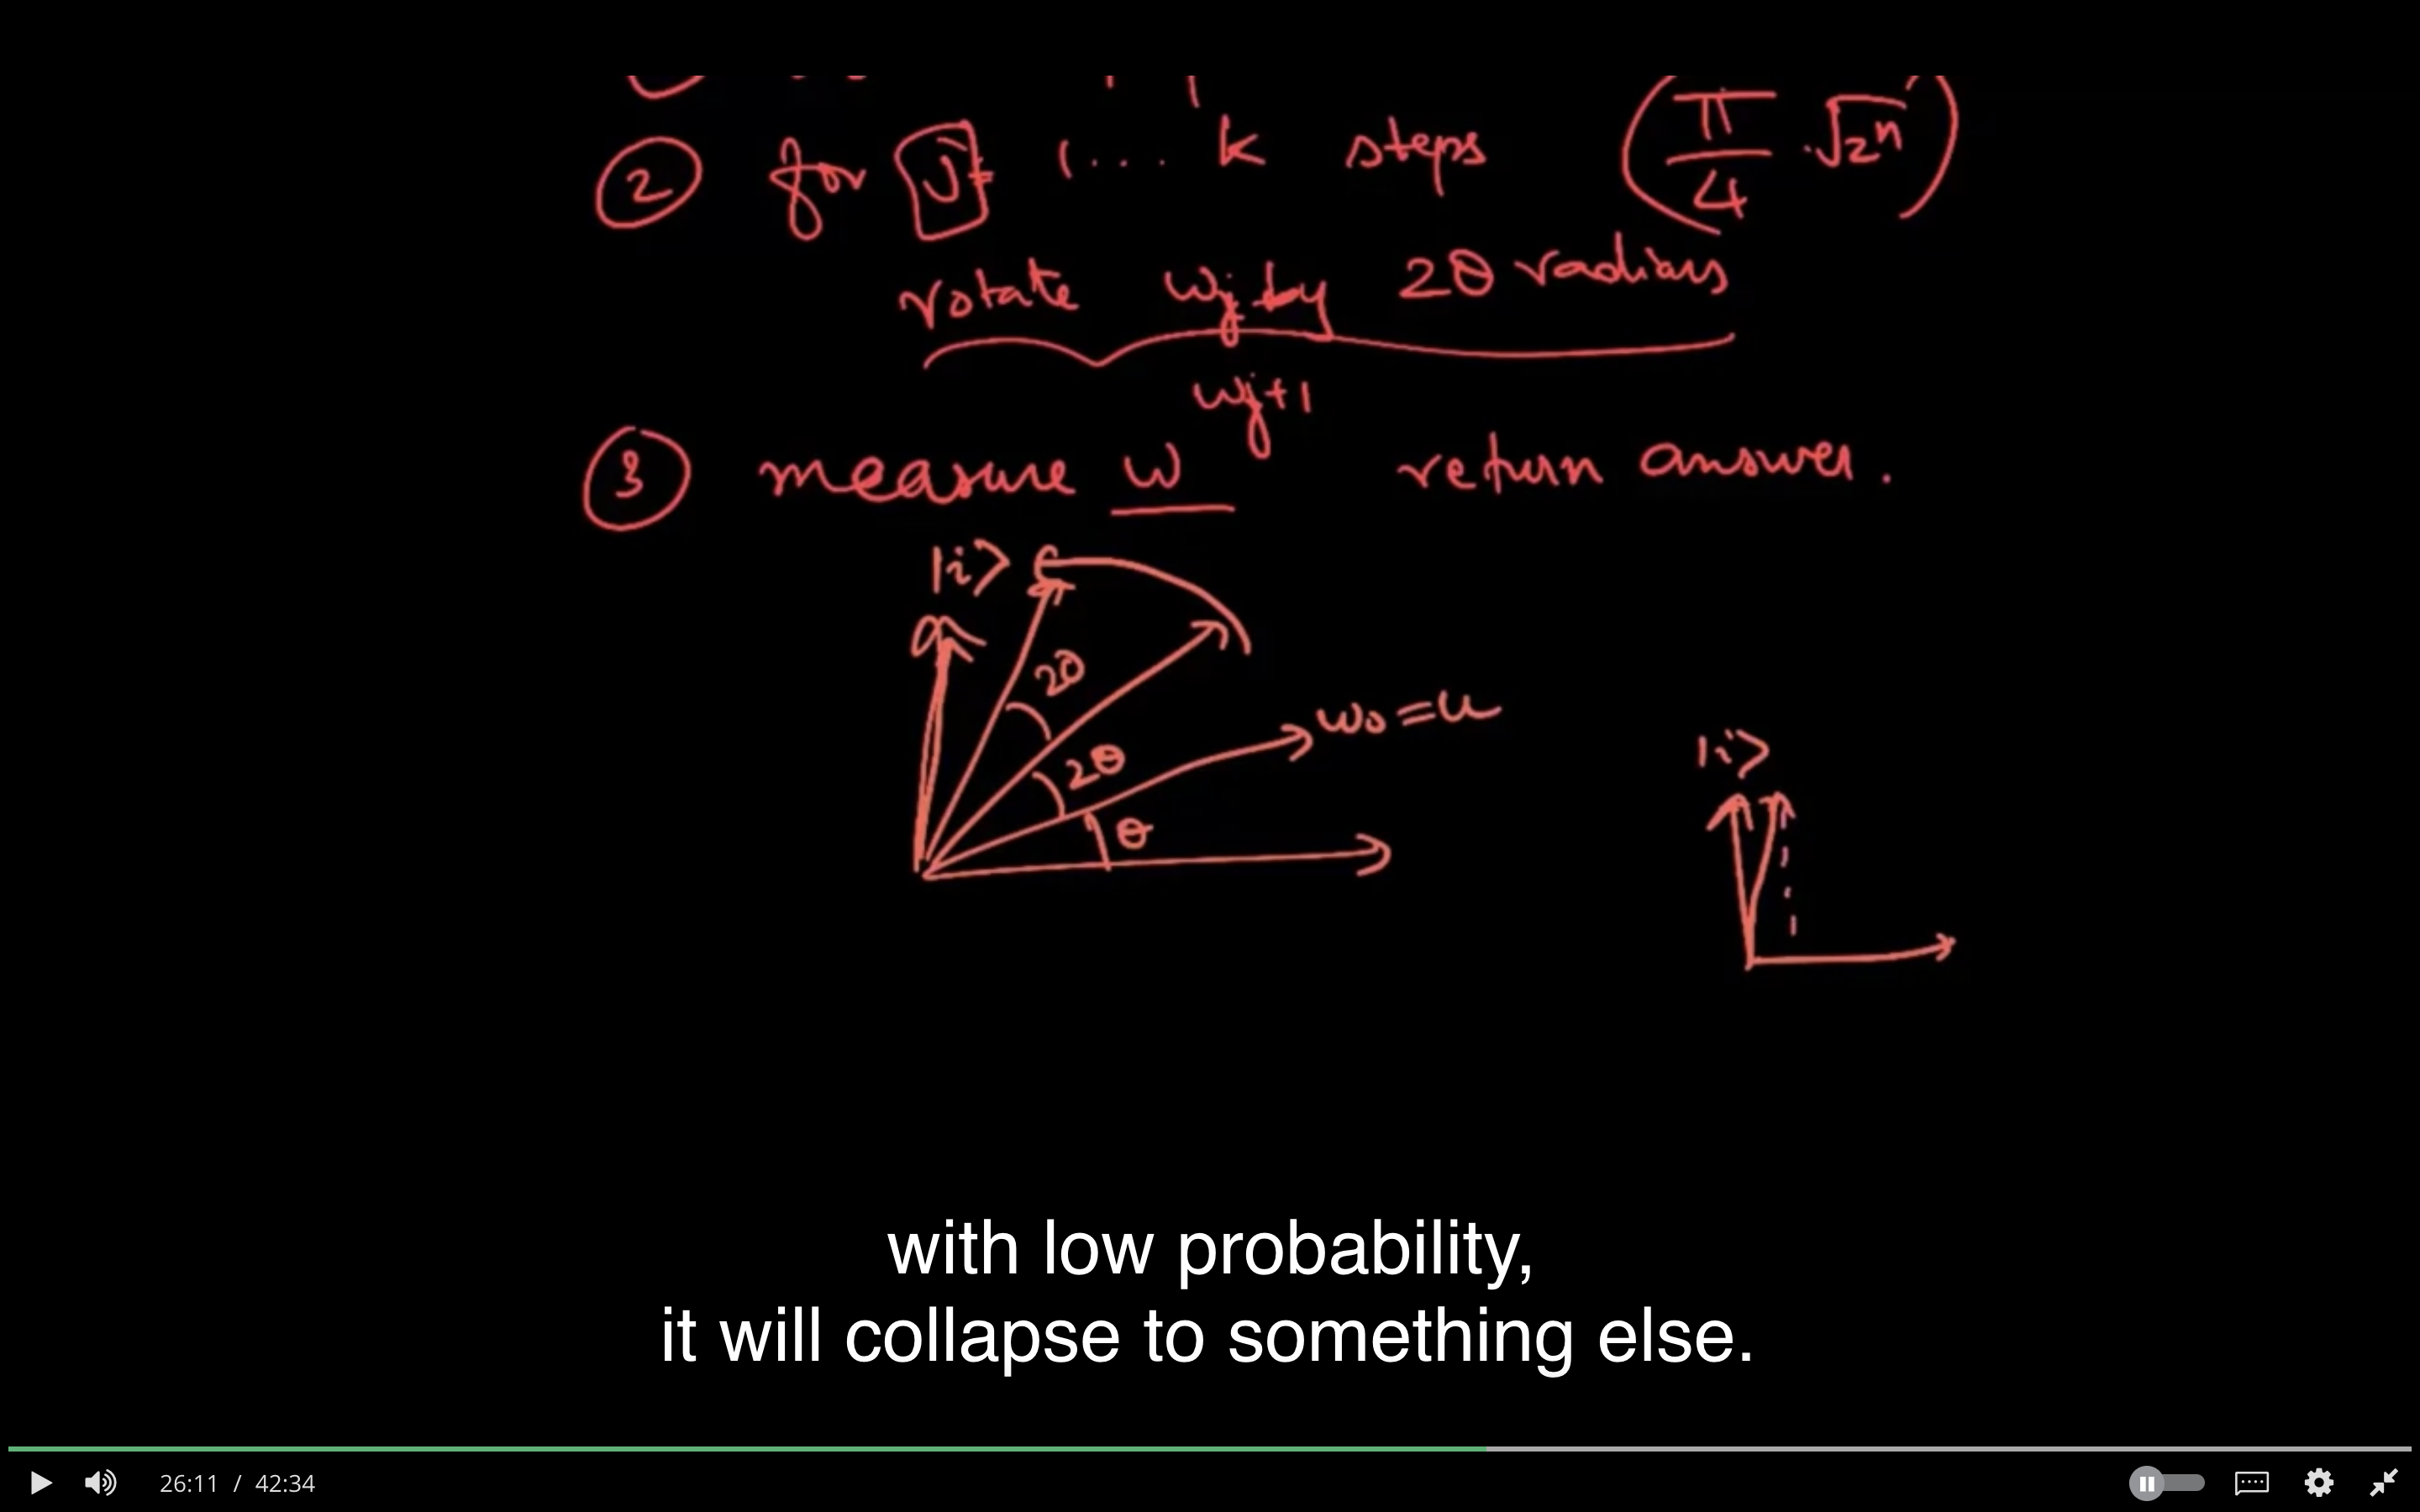 ② for j= 1 ... k steps (π/4 · √2ⁿ)
rotate wj by 2θ radians
wj+1
③ measure w return answer.
|i⟩
2θ
w₀ = u
2θ
θ
|i⟩
with low probability,
it will collapse to something else.
26:11 / 42:34